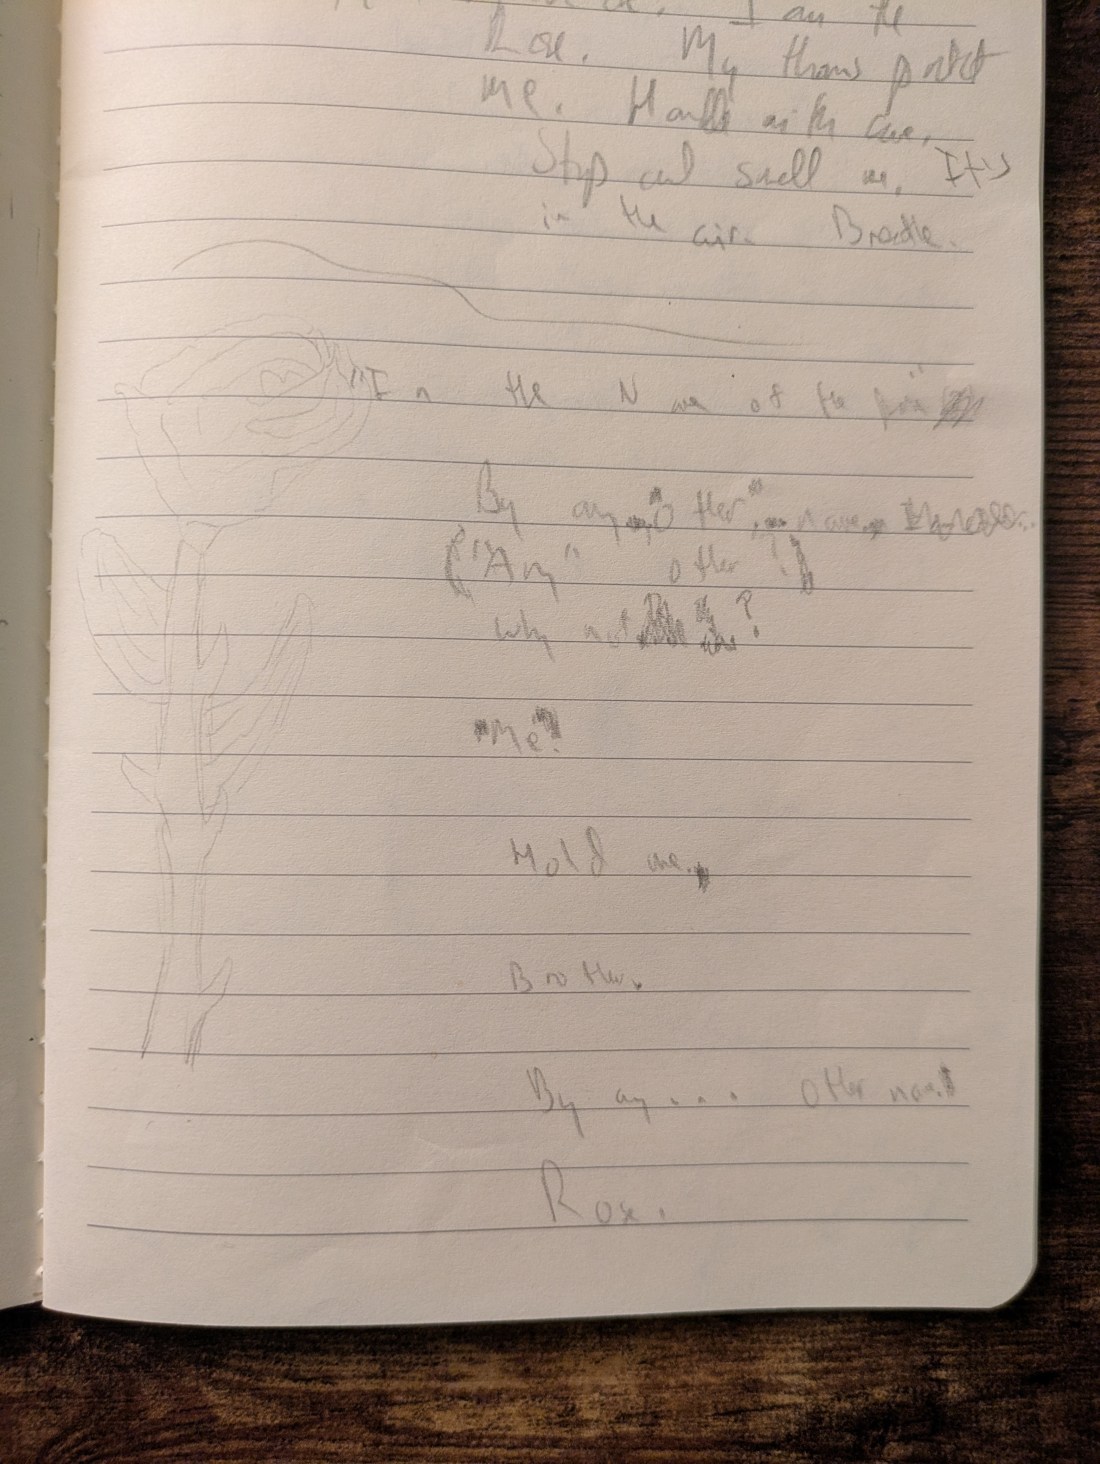 I am the
Rose. My thorns protect
me. Handle with care.
Stop and smell me. It's
in the air. Breathe.
"In the Name of the
By any "other" name,
("Any" other?)
why not
"Me"?
Hold me.
Brother.
By any... other name
Rose.